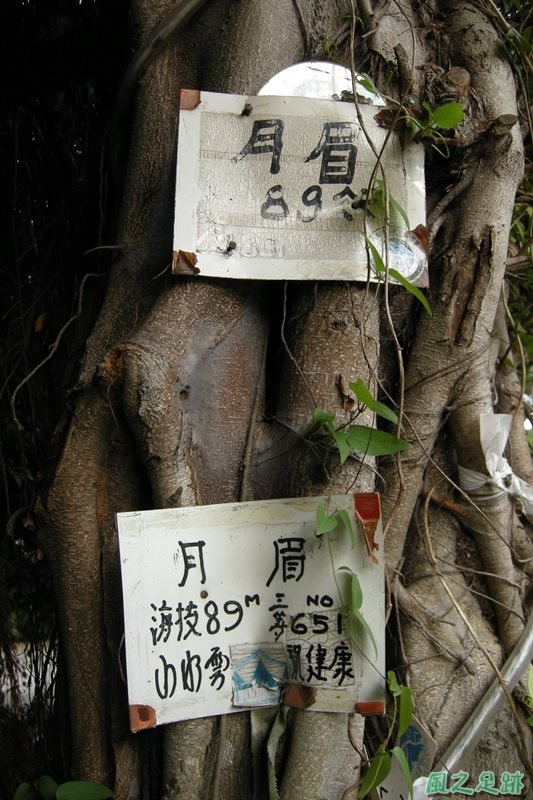 月眉
89
月眉
海拔89M三等NO
651
山水雲
祝健康
風之足跡